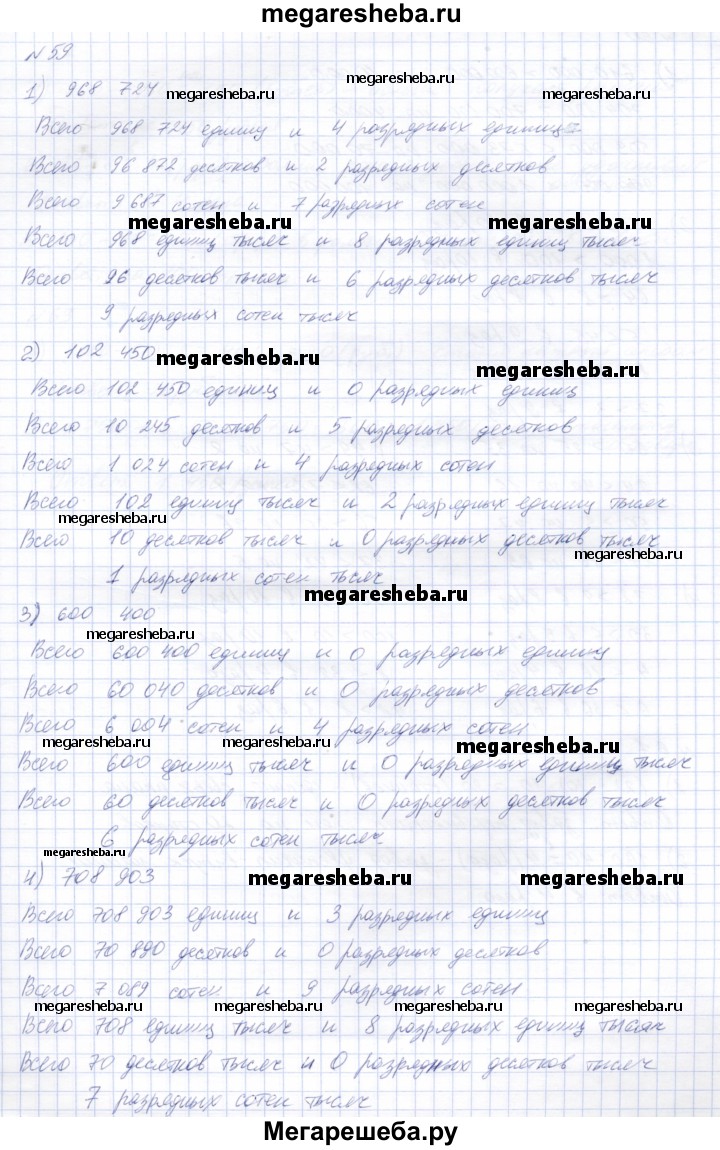 megaresheba.ru
№59
1) 968 724
megaresheba.ru megaresheba.ru megaresheba.ru
Всего 968 724 единиц и 4 разрядных единиц
Всего 96 872 десятков и 2 разрядных десятков
Всего 9 687 сотен и 7 разрядных сотен
megaresheba.ru megaresheba.ru
Всего 968 единиц тысяч и 8 разрядных единиц тысяч
Всего 96 десятков тысяч и 6 разрядных десятков тысяч
9 разрядных сотен тысяч
2) 102 450
megaresheba.ru megaresheba.ru
Всего 102 450 единиц и 0 разрядных единиц
Всего 10 245 десятков и 5 разрядных десятков
Всего 1 024 сотен и 4 разрядных сотен
Всего 102 единиц тысяч и 2 разрядных единиц тысяч
megaresheba.ru
Всего 10 десятков тысяч и 0 разрядных десятков тысяч
megaresheba.ru
1 разрядных сотен тысяч
megaresheba.ru
3) 600 400
megaresheba.ru
Всего 600 400 единиц и 0 разрядных единиц
Всего 60 040 десятков и 0 разрядных десятков
Всего 6 004 сотен и 4 разрядных сотен
megaresheba.ru megaresheba.ru megaresheba.ru
Всего 600 единиц тысяч и 0 разрядных единиц тысяч
Всего 60 десятков тысяч и 0 разрядных десятков тысяч
6 разрядных сотен тысяч
megaresheba.ru
4) 708 903
megaresheba.ru megaresheba.ru
Всего 708 903 единиц и 3 разрядных единиц
Всего 70 890 десятков и 0 разрядных десятков
Всего 7 089 сотен и 9 разрядных сотен
megaresheba.ru megaresheba.ru megaresheba.ru megaresheba.ru
Всего 708 единиц тысяч и 8 разрядных единиц тысяч
Всего 70 десятков тысяч и 0 разрядных десятков тысяч
7 разрядных сотен тысяч
Мегарешеба.ру